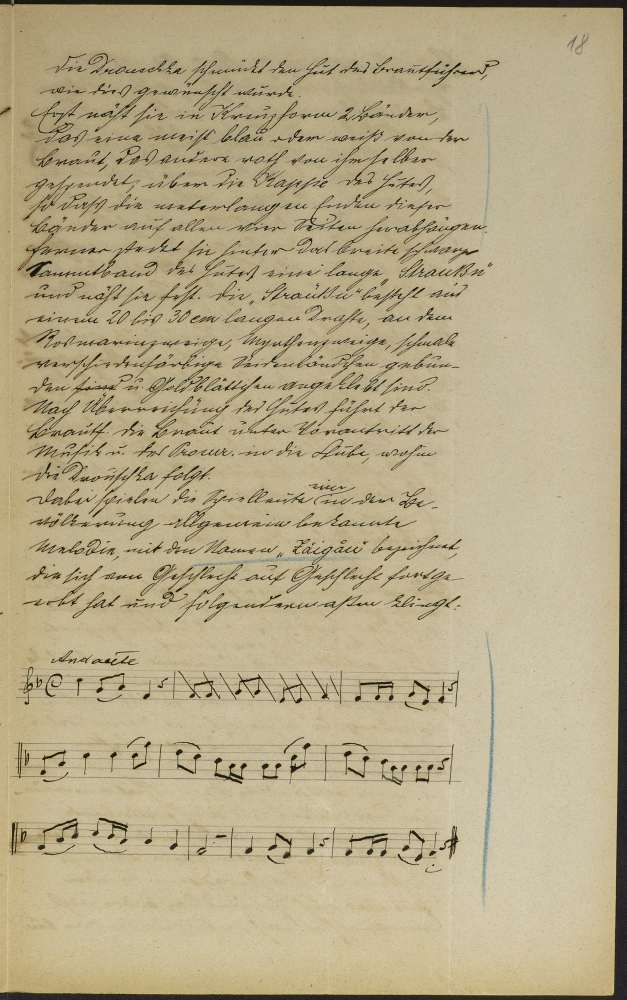 18
Die Drouschka schmückt den Hut des Brautführers,
wie dies gewünscht wurde.
Erst näht sie in Kreuzform 2 Bänder,
das eine meist blau oder weiß von der
Braut, das andere roth von ihm selber
gespendet, über die Kappe des Hutes,
so daß die meterlangen Enden dieser
Bänder auf allen vier Seiten herabhängen.
Ferner steckt sie hinter das breite schwarze
Sammtband des Hutes eine lange „Straußn"
und näht sie fest. Die „Straußn" besteht aus
einem 20 bis 30 cm langen Drahte, an dem
Rosmarinzweige, Myrthenzweige, schmale
verschiedenfärbige Seidenbändchen gebun-
den sind u. Goldblättchen angeklebt sind.
Nach Überreichung des Hutes führt der
Brautf. die Braut unter Vorantritt der
Musik u. des in die Stube, wohin
die Drouschka folgt.
Dabei spielen die Spielleute eine in der Be-
völkerung allgemein bekannte
Melodie, mit dem Namen „Zäigäu" bezeichnet,
die sich von Geschlecht auf Geschlecht fortge-
erbt hat und folgendermaßen klingt:
Andante
C